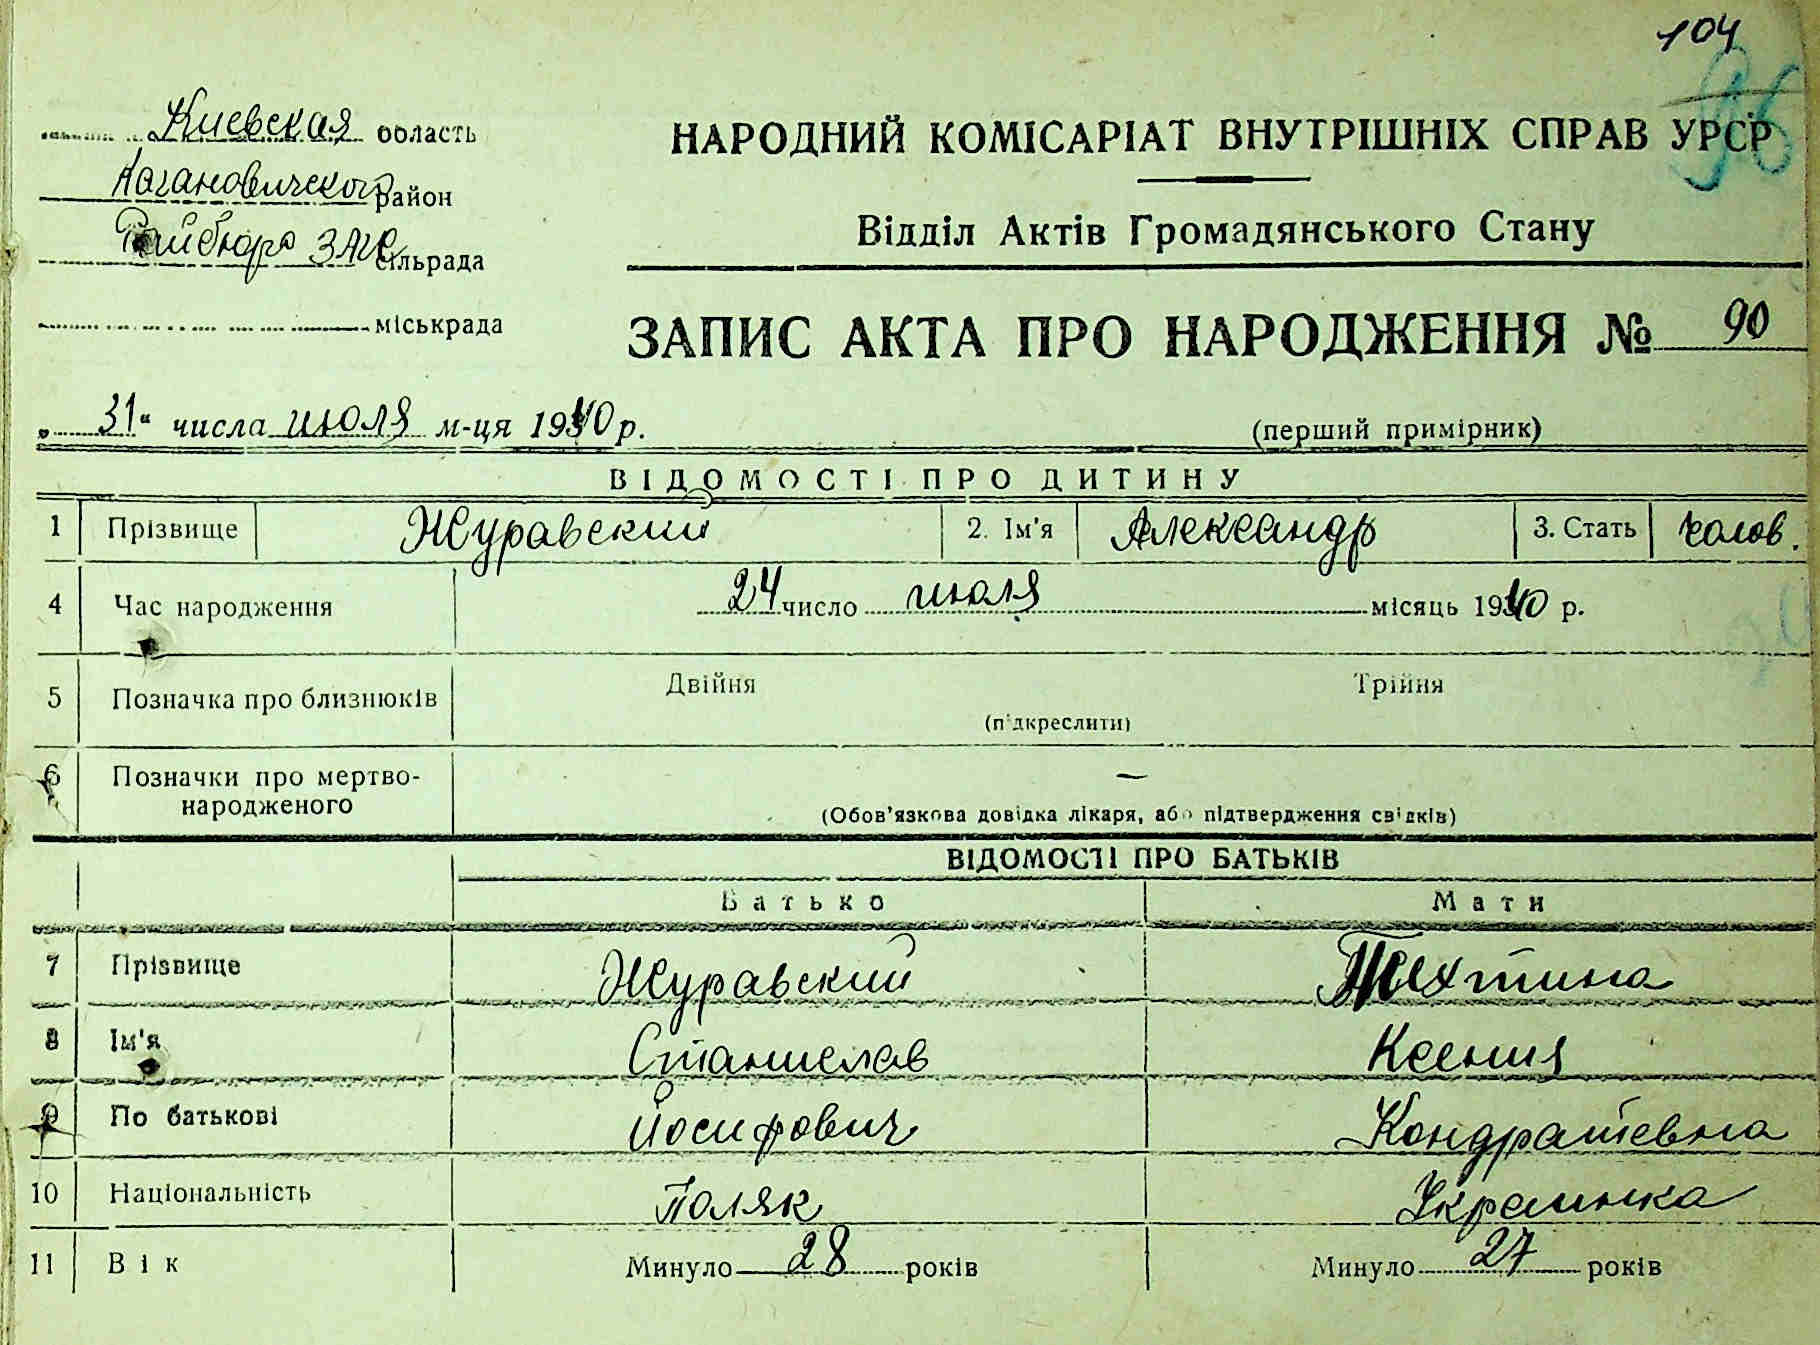 104
96
Киевская область
Кагановичского район
Райбюро ЗАГС сільрада
міськрада
НАРОДНИЙ КОМІСАРІАТ ВНУТРІШНІХ СПРАВ УРСР
Відділ Актів Громадянського Стану
ЗАПИС АКТА ПРО НАРОДЖЕННЯ № 90
„31“ числа июля м-ця 1940 р.
(перший примірник)
ВІДОМОСТІ ПРО ДИТИНУ
1 Прізвище Журавский 2. Ім'я Александр 3. Стать чолов.
4 Час народження 24 число июля місяць 1940 р.
5 Позначка про близнюків Двійня Трійня
(підкреслити)
6 Позначки про мертво-
народженого —
(Обов'язкова довідка лікаря, або підтвердження свідків)
ВІДОМОСТІ ПРО БАТЬКІВ
Батько Мати
7 Прізвище Журавский
8 Ім'я Станислав Ксения
9 По батькові Йосифович Кондратевна
10 Національність Поляк Украинка
11 Вік Минуло 28 років Минуло 27 років